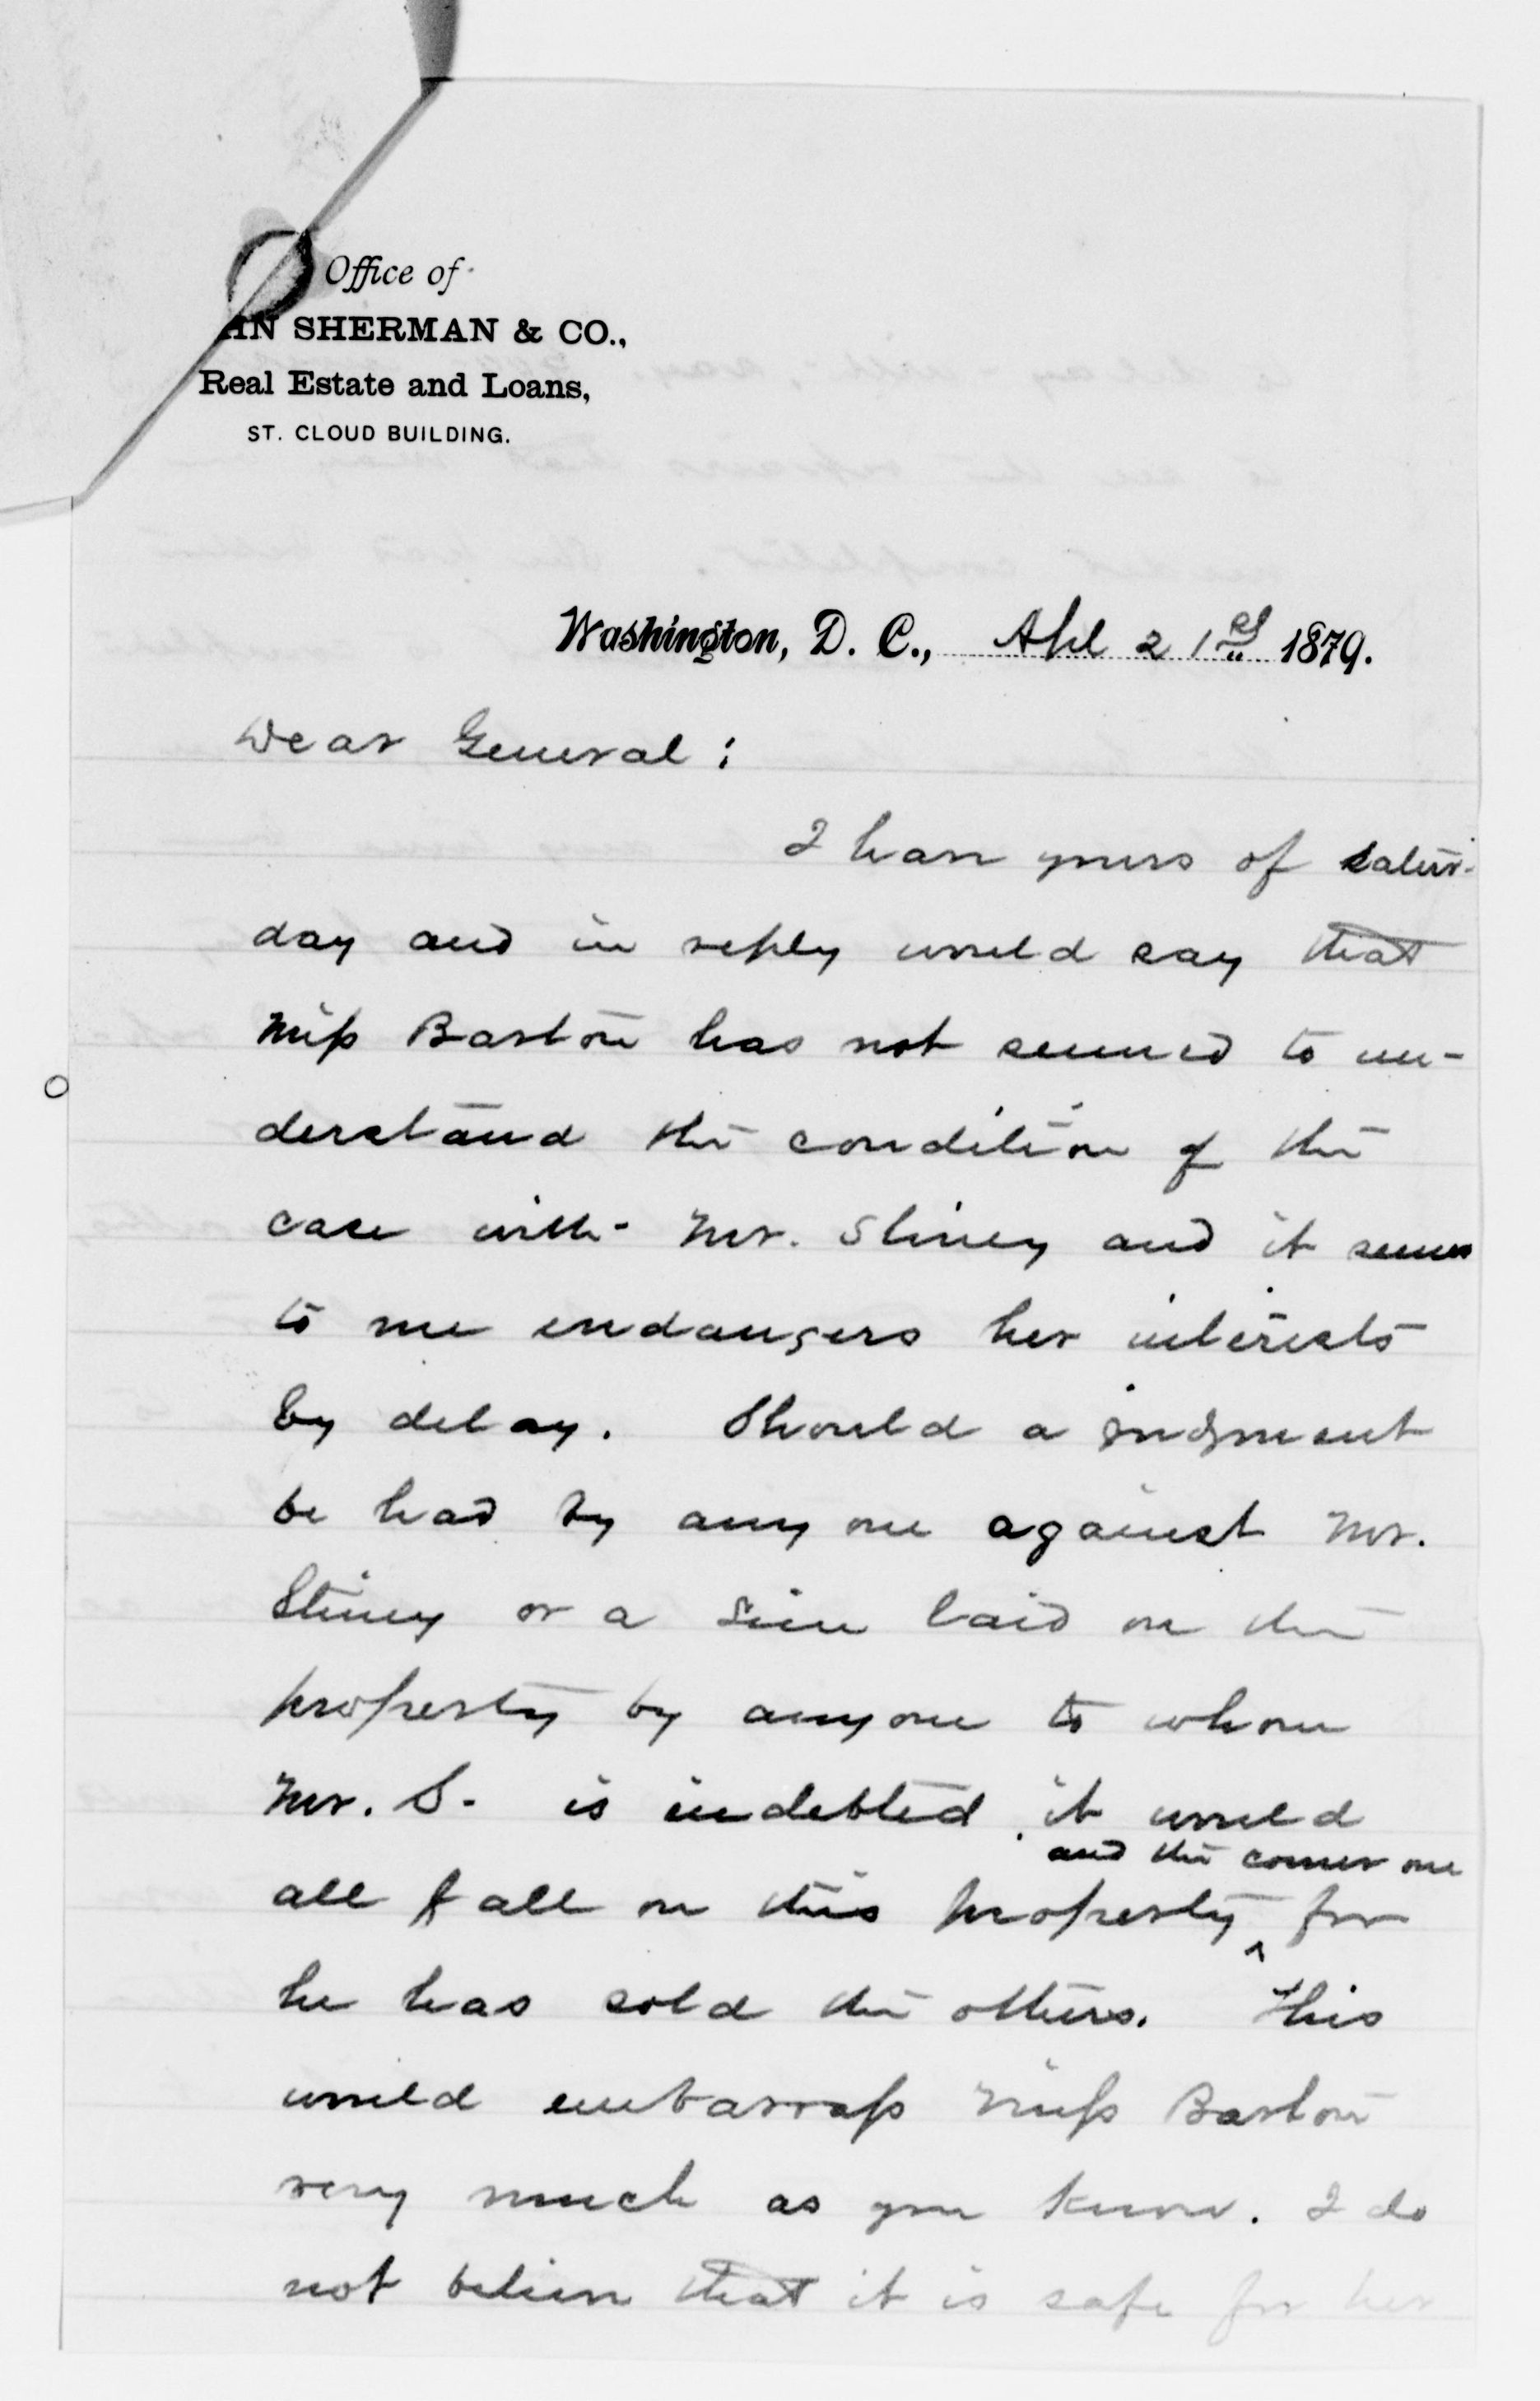 Office of
HN SHERMAN & CO.,
Real Estate and Loans,
ST. CLOUD BUILDING.
Washington, D. C., Apl 21st 1879.
Dear General:
I have yours of Satur-
day and in reply would say that
Miss Barton has not seemed to un-
derstand the condition of the
case with Mr. Stiney and it seems
to me endangers her interests
by delay. Should a judgment
be had by any one against Mr.
Stiney or a lien laid on the
property by anyone to whom
Mr. S. is indebted, it would
and the corner one
all fall on this property ^ for
he has sold the others. This
would embarrass Miss Barton
very much as you know. I do
not believe that it is safe for her